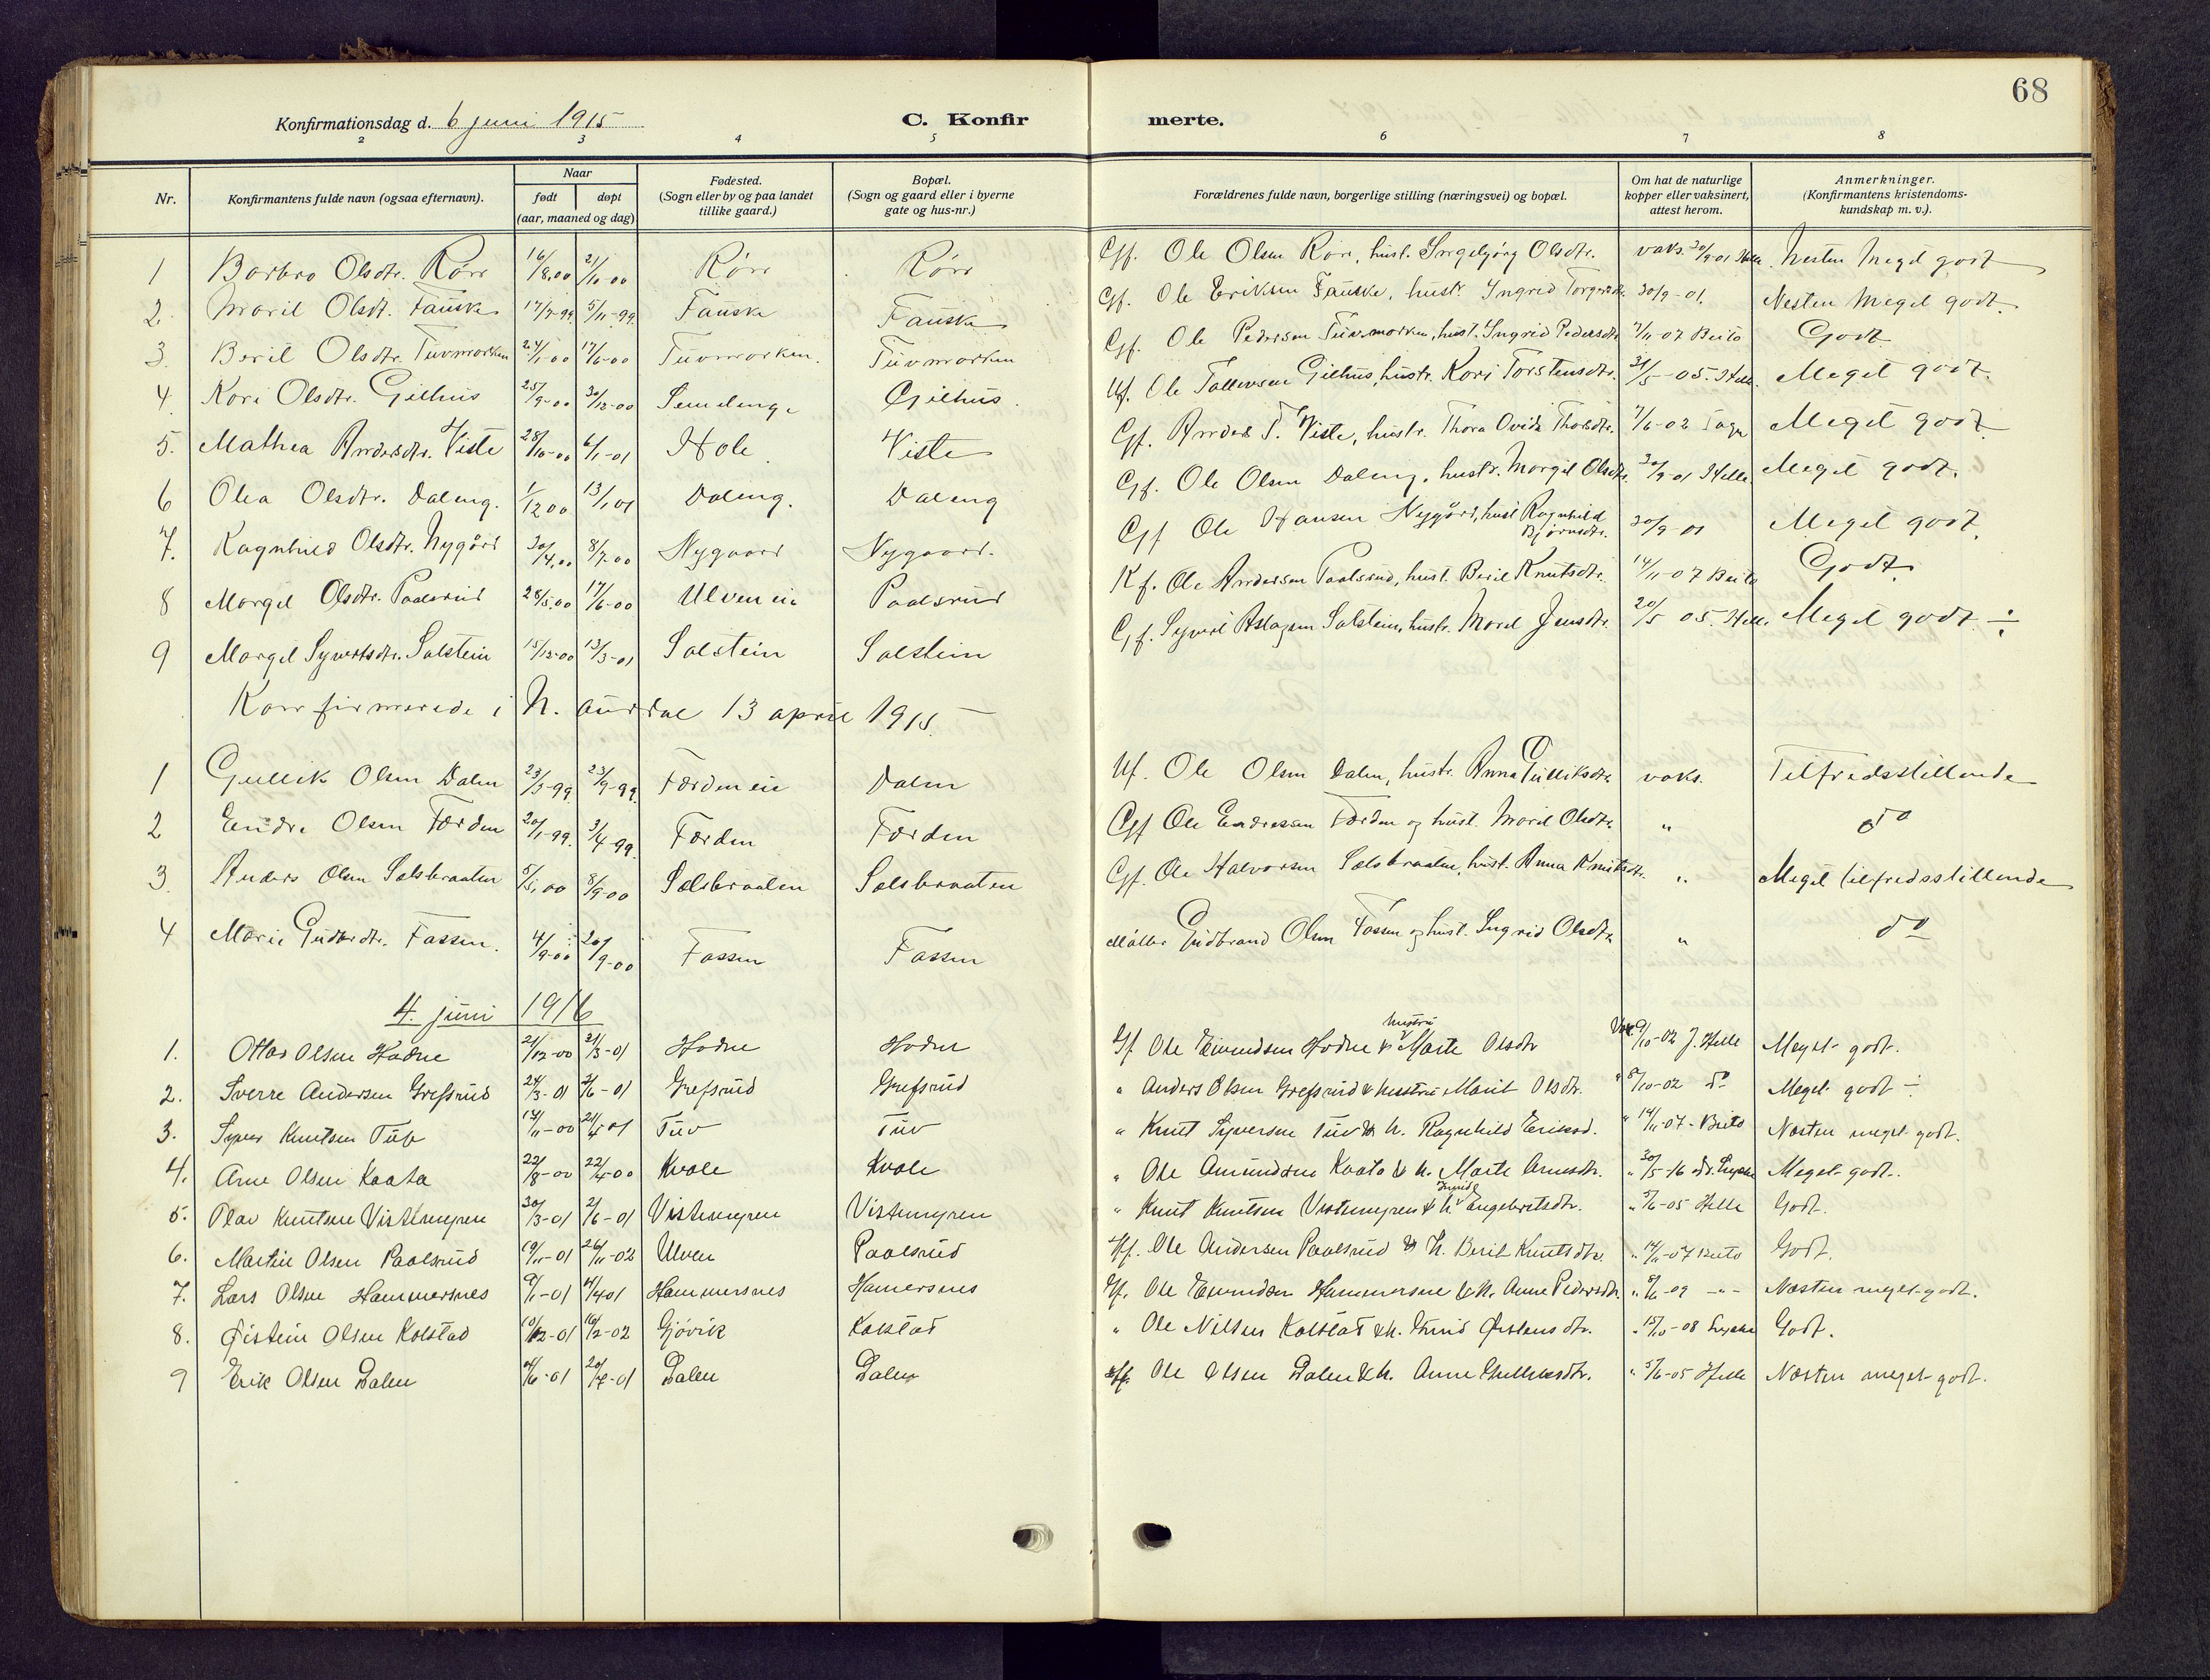 68
Konfirmationsdag d. 6 juni 1915
C. Konfirmerte.
2 3 4 5 6 7 8
Nr. Konfirmantens fulde navn (ogsaa efternavn). Naar født døpt (aar, maaned og dag) Fødested. (Sogn eller by og paa landet tillike gaard.) Bopæl. (Sogn og gaard eller i byerne gate og hus-nr.) Forældrenes fulde navn, borgerlige stilling (næringsvei) og bopæl. Om hat de naturlige kopper eller vaksinert, attest herom. Anmerkninger. (Konfirmantens kristendomskundskap m. v.).
1 Barbro Olsdtr. Rörr 16/8.00 21/10-00 Rörr Rörr Gff. Ole Olsen Rörr, hust. Ingebjörg Olsdtr. vaks. 30/9-01 Helle. Nesten Meget godt
2. Marit Olsdt. Fauske 17/7-99 5/11-99. Fauske Fauske Gf. Ole Eriksen Fauske, hustr. Ingrid 30/9-01. Nesten Meget godt.
3. Beril Olsdtr. Tuvmarken 24/1-00 17/6-00 Tuvmarken. Tuvmarken Gf. Ole Pedersen Tuvmarken, hust. Ingrid Pedersdtr. 7/11-07 Beito Godt
4. Kari Olsdtr. Gilhus 25/9-00 30/12-00 Semelenge Gilhus. Uf. Ole Tollevsen Gilhus, hustr. Kari Torstensdtr. 31/5-05. Helle. Meget godt.
5. Mathea Andersdtr. Viste 28/10-00 6/1-01 Hole Viste Gf. Anders T. Viste, hustr. Thora Ovida Thorsdtr. 7/6-02 Meget godt.
6 Olea Olsdtr. Daleng. 1/12 00 13/1 01 Daleng. Daleng Gf. Ole Olsen Daleng, hustr. Margit Olsdtr. 30/9-01 Helle. Meget godt.
7. Ragnhild Olsdtr. Nygård 30/4.00 8/7-00 Nygaard Nygaard. Gf Ole Hansen Nygård, hust Ragnhild Bjørnsdtr. 30/9-01 Meget godt.
8 Margit Olsdtr. Paalsrud 28/3.00 17/6-00 Ulven eie Paalsrud Kf. Ole Andersen Paalsrud, hust. Beril Knutsdtr. 14/11-07 Beito Godt
9 Margit Syvertsdtr. Salstein 15/12-00 13/3-01 Salstein Salstein Gf. Syvert Aslagsen Salstein, hustr. Marit Jensdtr. 20/5 05. Helle. Meget godt ÷
Konfirmerede i N. Aurdal 13 april 1915.
1 Gullik Olsen Dalen 23/3-99 23/9-99. Færden eie Dalen Uf. Ole Olsen Dalen, hustr. Anna Gulliksdtr vaks. Tilfredsstillende
2 Endre Olsen Færden 20/1-99. 3/4-99. Færden Færden Gf Ole Endresen Færden og hust. Marit Olsdtr " do
3. Anders Olsen Sælsbraaten 5/5.00 8/9-00 Sælsbraaten Sælsbraaten Gf. Ole Halvorsen Sælsbraaten, hust. Anna Knutsdtr. " Meget tilfredsstillende
4 Marie Gudbrdtr. Fassen. 4/9-00 20/9-00 Fassen Fassen Møller Gudbrand Olsen Fossen og hust. Ingrid Olsdtr " do
4. juni 1916
1. Ottar Olsen Hodne 21/12-00 21/3-01 Hodne Hodne Gf. Ole Eivindsen Hodne & hustru Marte Olsdtr Vak. 9/10-02 J. Helle Meget godt.
2. Sverre Andersen Grefsrud 24/3-01 2/6-01 Grefsrud Grefsrud " Anders Olsen Grefsrud & hustru Marit Olsdtr. " 8/10-02 do Meget godt ÷
3. Syver Knutsen Tuv 13/11-00 21/4-01 Tuv Tuv " Knut Syversen Tuv & h. Ragnhild Eriksd. " 14/11-07 - Beito Næsten meget godt.
4. Arne Olsen Kaata 22/8-00 22/4-00 Kvale Kvale " Ole Amundsen Kaata & h. Marte Arnesdtr. " 30/5-16 dr. Meget godt.
5. Olav Knutsen Vistemyren 30/3-01 2/6-01 Vistemyren Vistemyren " Knut Knutsen Vistemyren & h. Engebretsdtr. " 5/6-05 Helle Godt.
6. Martin Olsen Paalsrud 19/11-01 26/11-02 Ulven Paalsrud Kf. Ole Andersen Paalsrud & h. Berit Knutsdtr. " 14/11-07 Beito Godt.
7. Lars Olsen Hammersnes 9/1-01 4/4 01 Hammersnes Hamersnes Gf. Ole Eivindsen Hammersnes & h. Anne Pedersdtr. " -09 -"- Næsten meget godt.
8. Øistein Olsen Kolstad 10/12-01 16/2-02 Gjøvik Kolstad " Ole Nilsen Kolstad & h. Østensdtr. " 15/10-08 Godt.
9 Erik Olsen Dalen 4/6-01 20/7-01 Dalen Dalen Ole Olsen Dalen & h. Anne Gulliksdtr. " 5/6-05 Helle Næsten meget godt.